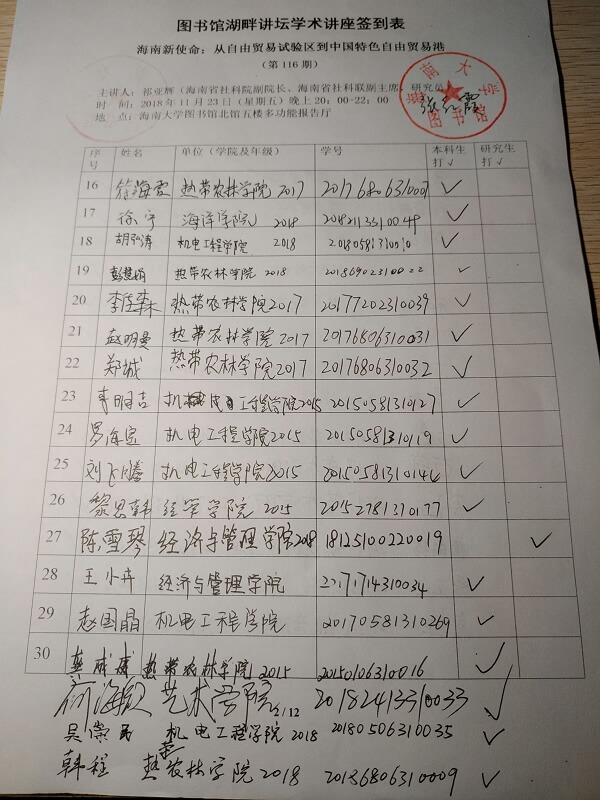 图书馆湖畔讲坛学术讲座签到表
海南新使命：从自由贸易试验区到中国特色自由贸易港
（第 116 期）
主讲人：祁亚辉（海南省社科院副院长、海南省社科联副主席、研究员）
时 间：2018 年 11 月 23 日（星期五）晚上 20：00-22：00
地 点：海南大学图书馆北馆五楼多功能报告厅
海南大学
图书馆
序号 姓名 单位（学院及年级） 学号 本科生打√ 研究生打√
16 符海雪 热带农林学院 2017 20176806310007 √
17 徐宁 海洋学院 2018 √
18 胡弘涛 机电工程学院 2018 20180581310010 √
19 彭慧娟 热带农林学院 2018 20186902310022 √
20 热带农林学院 2017 20177202310039 √
21 赵明曼 热带农林学院 2017 20176806310031 √
22 郑城 热带农林学院 2017 20176806310032 √
23 机电工程学院 2015 20150581310127 √
24 罗海宝 机电工程学院 2015 20150581310119 √
25 刘飞腾 机电工程学院 2015 20150581310144 √
26 黎思韩 经管学院 2015 20152781310177 √
27 陈雪琴 经济与管理学院 2018 18125100220019 √
28 王小卉 经济与管理学院 20171714310034 √
29 赵国晶 机电工程学院 20170581310269 √
30 热带农林学院 2015 20150106310016 √
艺术学院 20182413310033 √
吴崇民 机电工程学院 2018 20180506310035 √
韩程 热带农林学院 2018 20186806310009 √